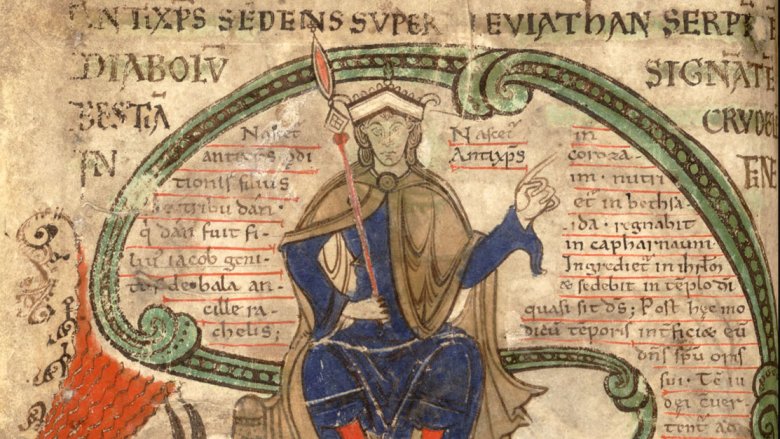 ANTIXP̄S SEDENS SUPER LEVIATHAN SERPE
DIABOLŪ SIGNĀTE
BESTIĀ CRUDE
IN
Nascet᷒
antixp̄s p̄di
tionis filius
de tribu dan·
q̄ dan fuit fi
lius iacob geni
tus de bala an
cille ra
chelis;
Nascet᷒
Antixp̄s
in
coroza
im· nutri
et᷒ in bethsa
ida· regnabit
in capharnaum·
Ingrediet᷒ in ihrl̄m
& sedebit in tēplo di
quasi sit d̄s; Post hęc mo
dicū tēporis int̄ficiet eū
dn̄s sp̄u oris
sui· Tc̄ iu
dei cuer
tent ad